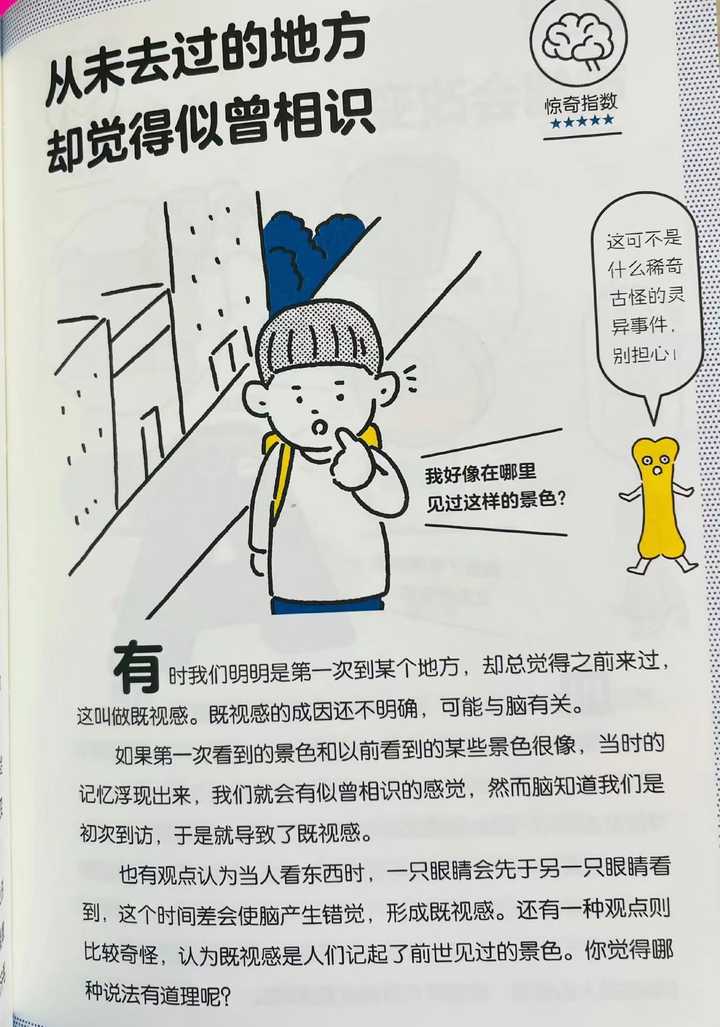 从未去过的地方
却觉得似曾相识
惊奇指数
这可不是
什么稀奇
古怪的灵
异事件，
别担心！
我好像在哪里
见过这样的景色？
有时我们明明是第一次到某个地方，却总觉得之前来过，
这叫做既视感。既视感的成因还不明确，可能与脑有关。
如果第一次看到的景色和以前看到的某些景色很像，当时的
记忆浮现出来，我们就会有似曾相识的感觉，然而脑知道我们是
初次到访，于是就导致了既视感。
也有观点认为当人看东西时，一只眼睛会先于另一只眼睛看
到，这个时间差会使脑产生错觉，形成既视感。还有一种观点则
比较奇怪，认为既视感是人们记起了前世见过的景色。你觉得哪
种说法有道理呢？